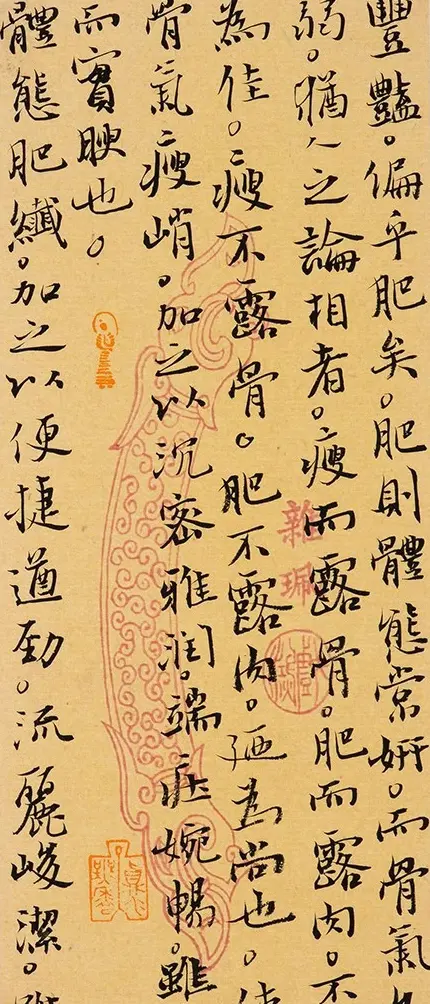 豐豔。偏乎肥矣。肥則體態常妍。而骨氣
弱。猶人之論相者。瘦而露骨。肥而露肉。不
為佳。瘦不露骨。肥不露肉。廼為尚也。使
骨氣瘦峭。加之以沉密雅潤。端莊婉暢。雖
而實腴也。
體態肥纖。加之以便捷遒勁。流麗峻潔。雖
雜珮